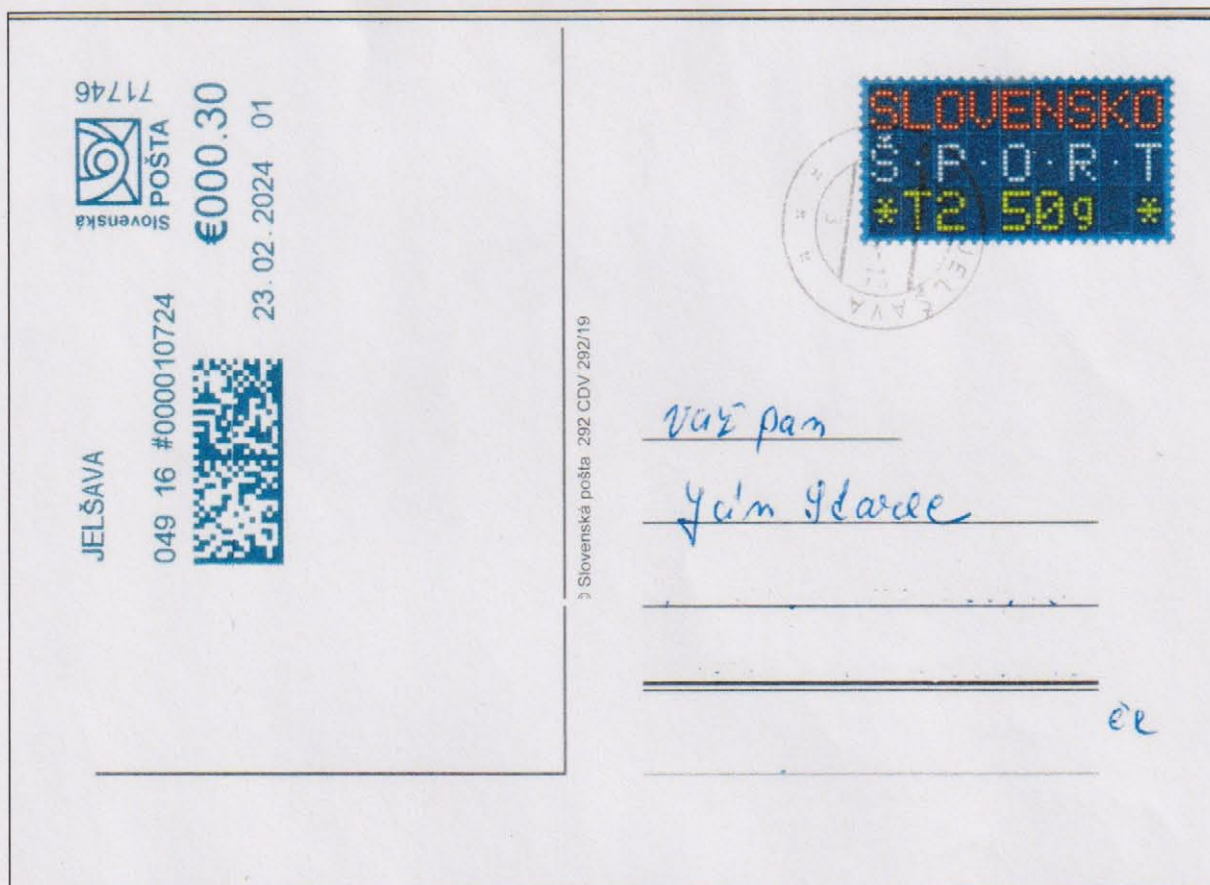 71746
Slovenská
POŠTA
€000.30
23.02.2024 01
JELŠAVA
049 16 #000010724
© Slovenská pošta 292 CDV 292/19
SLOVENSKO
Š·P·O·R·T
*T2 50g *
JELŠAVA
Váž pan
Ján